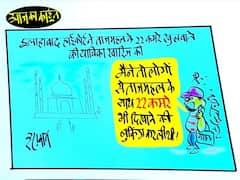 आज का कार्टून
इलाहाबाद हाईकोर्ट ने ताजमहल के 22 कमरे खुलवाने
की याचिका खारिज की
मैंने तो लोगों
से ताजमहल के
साथ 22 कमरे
भी दिखाने की
बुकिंग कर ली थी!